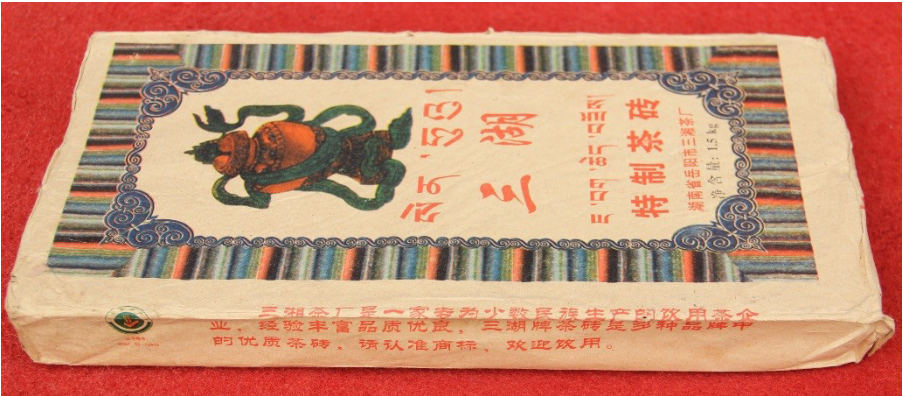 三湖
特制茶砖
湖南省岳阳市三湘茶厂
净含量：1.5 kg
三湘茶厂是一家专为少数民族生产的饮用茶企
业，经验丰富品质优良，三湖牌茶砖是多种品牌中
的优质茶砖，请认准商标、欢迎饮用。